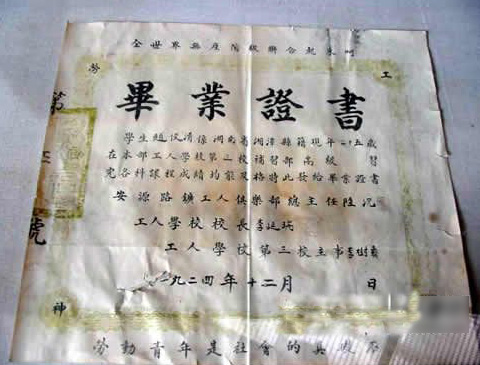 全世界無產階級聯合起來呵
勞 工
畢業證書
學生趙 清係湖南省湘潭縣籍現年 五歲
在本部工人學校第 校補習部高級 習
完各科課程成績均能及格特此發給畢業證書
安源路鑛工人俱樂部總主任陸沉
工人學校校長李延珫
工人學校第三校主事李樹彝
一九二四年十二月 日
第 號
神
勞動青年是社會的真